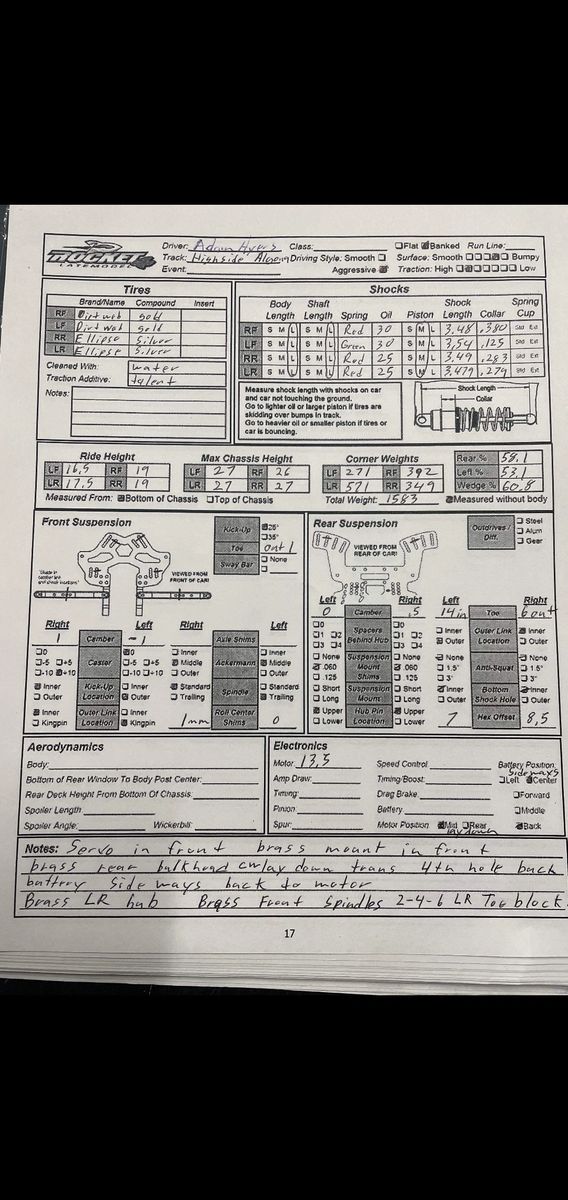 ROCKET
LATEMODELS
Driver: Adam Hvers Class: ☐Flat ☑Banked Run Line:
Track: Highside Driving Style: Smooth ☐ Surface: Smooth ☐☐☐☒☐ Bumpy
Event: Aggressive ☒ Traction: High ☐☒☐☐☐☐ Low
Tires
Brand/Name Compound Insert
RF Dirt web gold
LF Dirt web gold
RR Ellipse Silver
LR Ellipse Silver
Cleaned With: water
Traction Additive: talent
Notes:
Shocks
Body Length Shaft Length Spring Oil Piston Shock Length Collar Spring Cup
RF S M L S M L Red 30 S M L 3,48 .380 Std Ext
LF S M L S M L Green 30 S M L 3,54 .125 Std Ext
RR S M L S M L Red 25 S M L 3,49 .283 Std Ext
LR S M L S M L Red 25 S M L 3.479 .274 Std Ext
Measure shock length with shocks on car
and car not touching the ground.
Go to lighter oil or larger piston if tires are
skidding over bumps in track.
Go to heavier oil or smaller piston if tires or
car is bouncing.
Shock Length
Collar
Ride Height
LF 16,5 RF 19
LR 17.5 RR 19
Measured From: ☒Bottom of Chassis ☐Top of Chassis
Max Chassis Height
LF 27 RF 26
LR 27 RR 27
Corner Weights
LF 271 RF 392
LR 571 RR 349
Total Weight: 1583
Rear % 58.1
Left % 53.1
Wedge % 60.8
☒Measured without body
Front Suspension
Kick-Up ☒25° ☐35°
Toe out 1
Sway Bar ☐ None ☐
VIEWED FROM
FRONT OF CAR!
Right Left Right Left
1 Camber -1 Axle Shims
☐0 ☐-5 ☐+5 ☐-10 ☒+10 Caster ☒0 ☐-5 ☐+5 ☐-10 ☐+10
☐ Inner ☒ Middle ☐ Outer Ackermann ☐ Inner ☒ Middle ☐ Outer
☒ Inner ☐ Outer Kick-Up Location ☐ Inner ☒ Outer
☒ Standard ☐ Trailing Spindle ☐ Standard ☒ Trailing
☒ Inner ☐ Kingpin Outer Link Location ☐ Inner ☒ Kingpin
1mm Roll Center Shims 0
Rear Suspension
VIEWED FROM
REAR OF CAR!
Outdrives / Diff. ☐ Steel ☐ Alum ☐ Gear
Left Right Left Right
0 Camber .5 14 in Toe 6 out
☐0 ☐1 ☒2 ☐3 ☐4 Spacers Behind Hub ☐0 ☐1 ☐2 ☐3 ☐4
☐ Inner ☒ Outer Outer Link Location ☒ Inner ☐ Outer
☐ None ☒ .060 ☐ .125 Suspension Mount Shims ☐ None ☒ .060 ☐ .125
☒ None ☐ 1.5° ☐ 3° Anti-Squat ☒ None ☐ 1.5° ☐ 3°
☐ Short ☐ Long Suspension Mount ☐ Short ☐ Long
☒ Inner ☐ Outer Bottom Shock Hole ☒ Inner ☐ Outer
☒ Upper ☐ Lower Hub Pin Location ☒ Upper ☐ Lower
7 Hex Offset 8,5
Aerodynamics
Body:
Bottom of Rear Window To Body Post Center:
Rear Deck Height From Bottom Of Chassis:
Spoiler Length:
Spoiler Angle: Wickerbill:
Electronics
Motor 13,5 Speed Control Battery Position:
sideways
Amp Draw: Timing/Boost: ☐Left ☒Center
Timing: Drag Brake: ☐Forward
Pinion: Battery ☐Middle
Spur: Motor Position ☒Mid ☐Rear ☒Back
lay down
Notes: Servo in front brass mount in front
brass rear bulkhead cw/lay down trans 4th hole back
battery side ways back to motor
Brass LR hub Brass Front Spindles 2-4-6 LR Toe block.
17